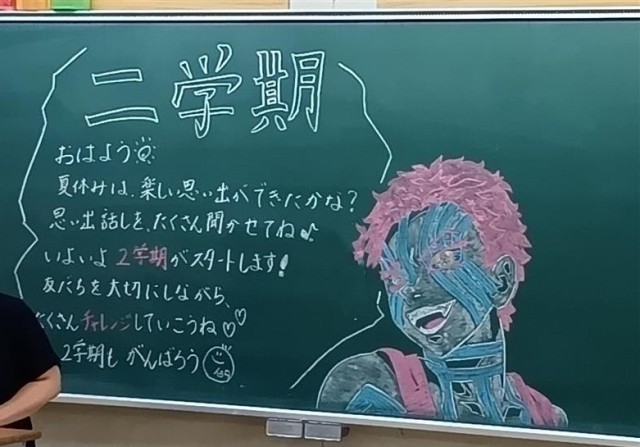 二学期
おはよう
夏休みは、楽しい思い出ができたかな?
思い出話しを、たくさん聞かせてね♪
いよいよ2学期がスタートします!
友だちを大切にしながら、
たくさんチャレンジしていこうね♡♡
2学期もがんばろう